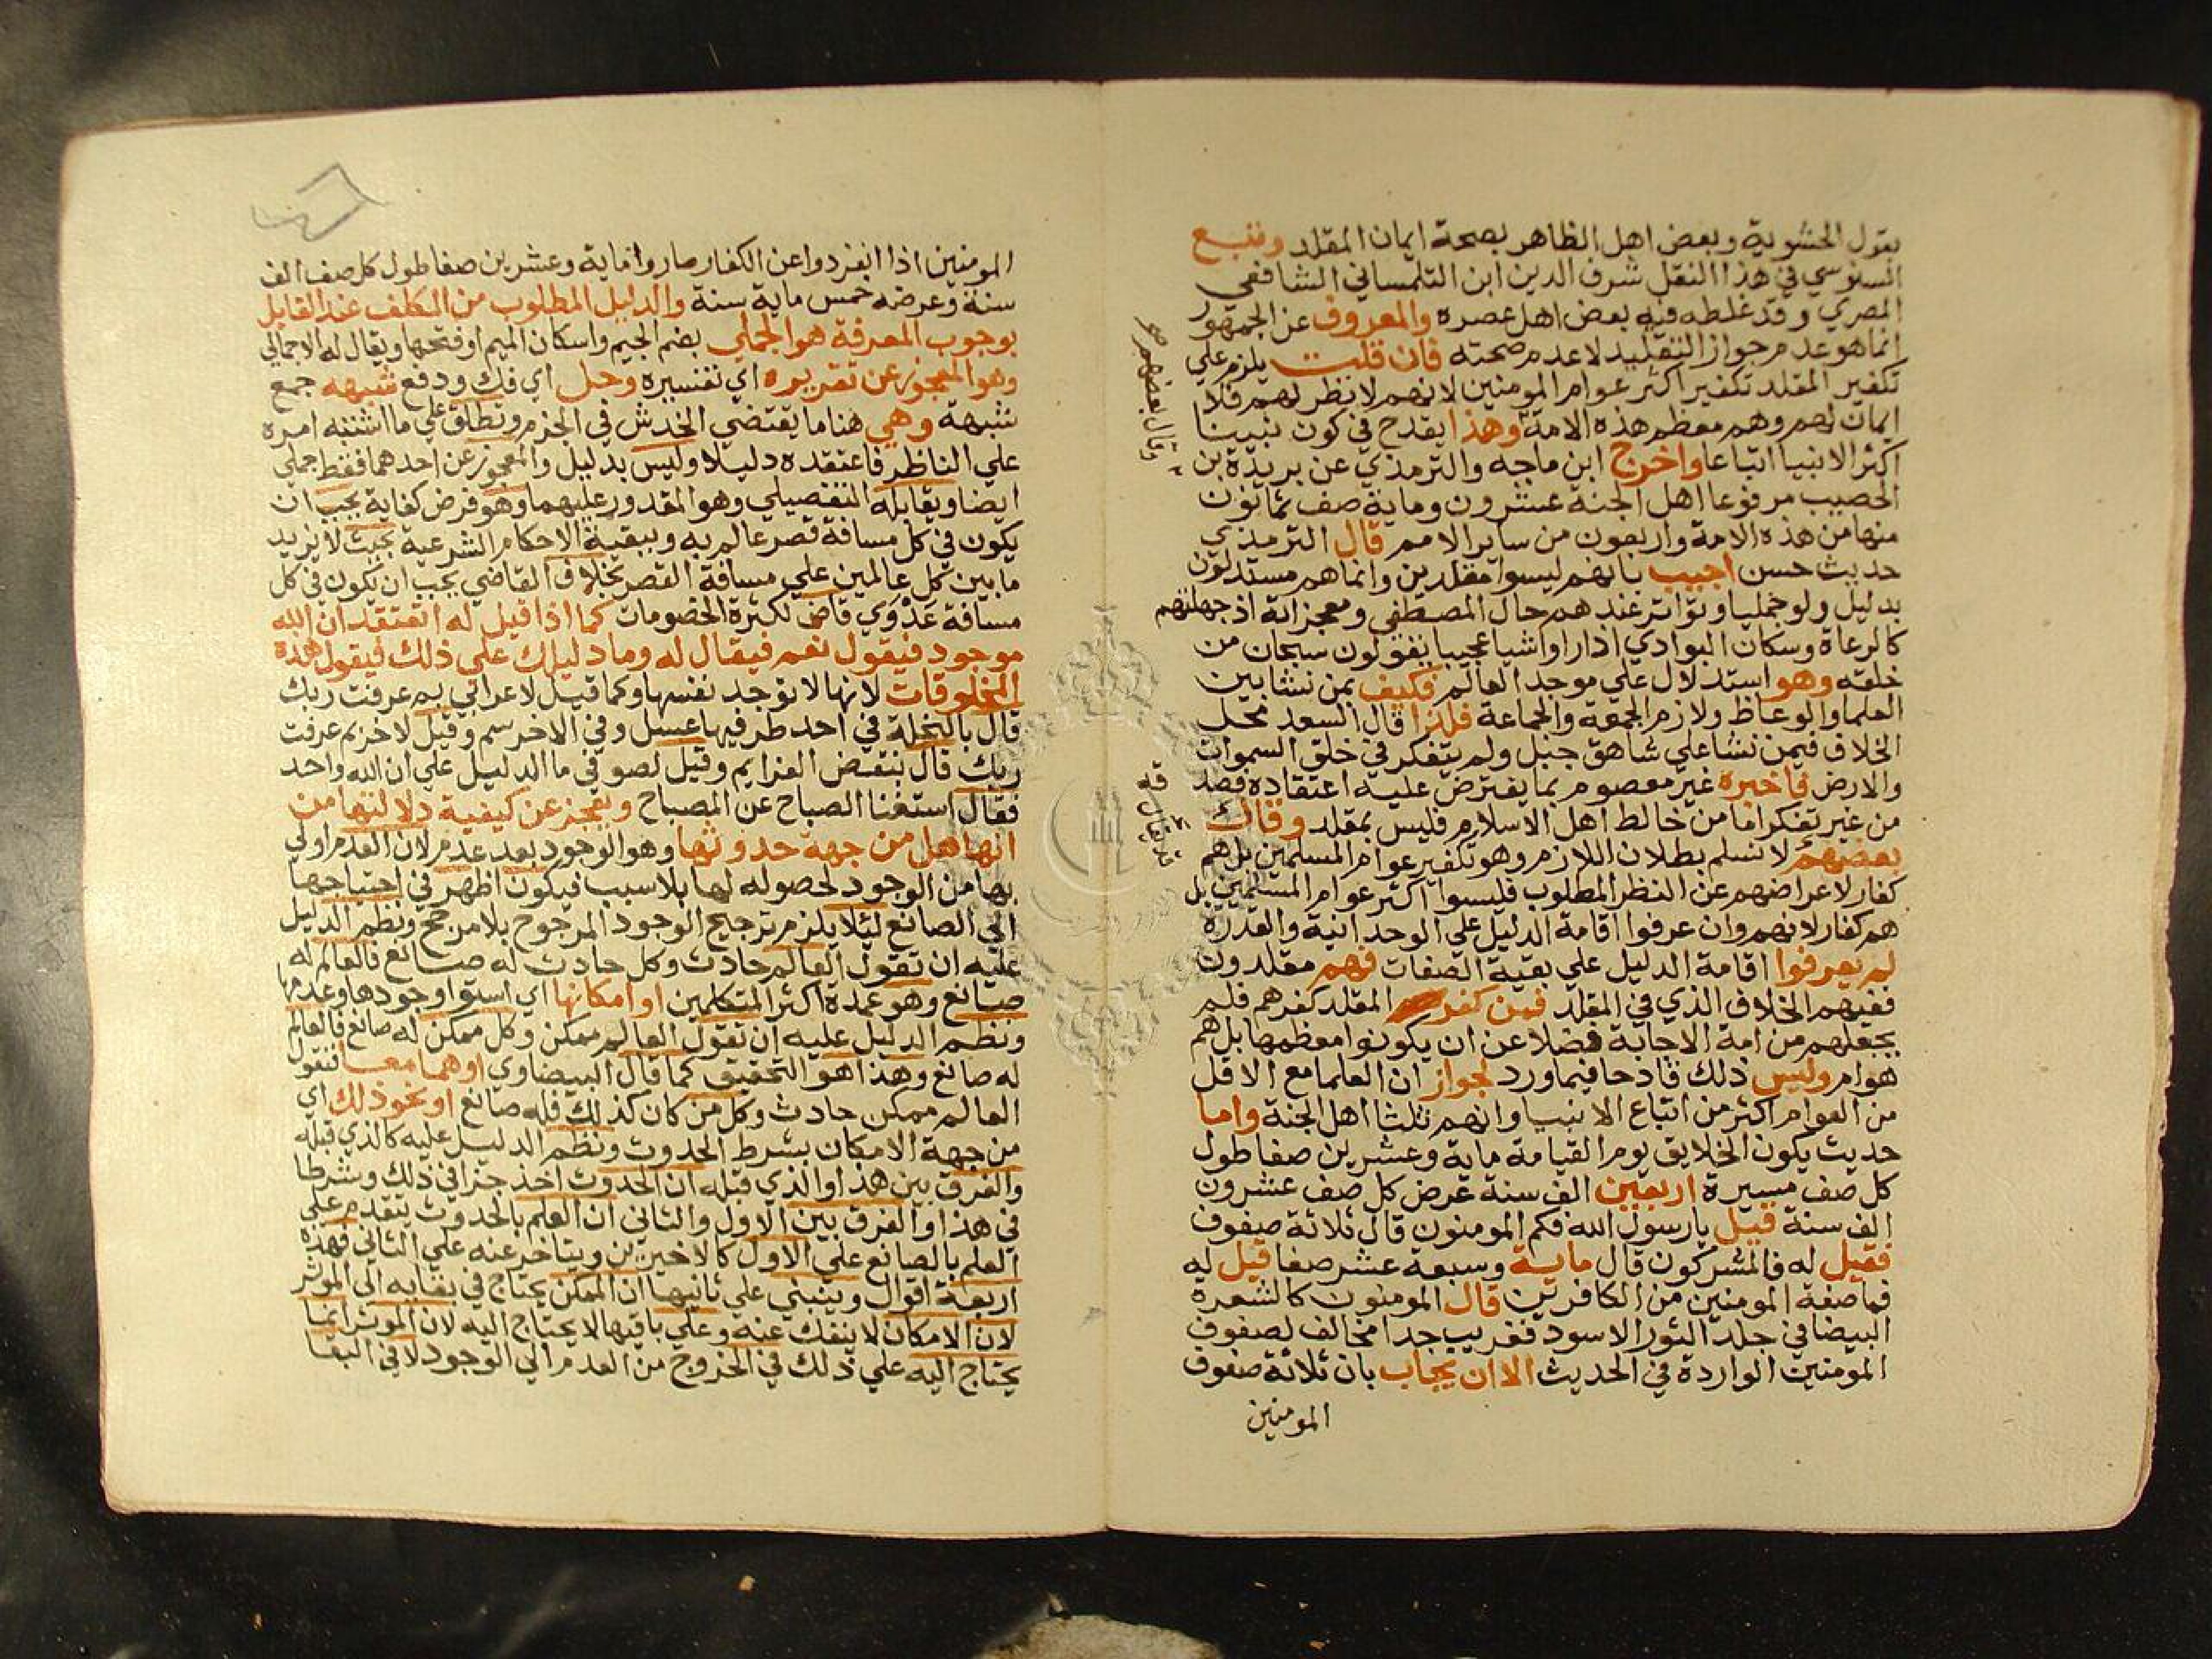 يقول الحشوية وبعض اهل الظاهر بصحة ايمان المقلد وتبع
السنوسي في هذا النقل شرف الدين ابن التلمساني الشافعي
المصري وقد غلطه فيه بعض اهل عصره والمعروف عن الجمهور
انما هو عدم جواز التقليد لا عدم صحته فان قلت يلزم علي
تكفير المقلد تكفير اكثر عوام المومنين لانهم لا نظر لهم فلا
ايمان لهم وهم معظم هذه الامة وهذا يقدح في كون نبينا
اكثر الانبيا اتباعا واخرج ابن ماجه والترمذي عن بريدة بن
الحصيب مرفوعا اهل الجنة عشرون وماية صف ثمانون
منها من هذه الامة واربعون من ساير الامم قال الترمذي
حديث حسن اجيب بانهم ليسوا مقلدين وانما هم مستدلون
بدليل ولو جمليا وتواتر عندهم حال المصطفي ومعجزاته اذ جهلتهم
كالرعاة وسكان البوادي اذا راوا شيا عجيبا يقولون سبحان من
خلقه وهو استدلال علي موجد العالم فكيف بمن نشا بين
العلما والوعاظ ولازم الجمعة والجماعة فلذا قال السعد محل
الخلاف فيمن نشا علي شاهق جبل ولم يتفكر في خلق السموات
والارض فاخبره غير معصوم بما يفترض عليه اعتقاده فصد
من غير تفكر اما من خالط اهل الاسلام فليس بمقلد وقال
بعضهم لا نسلم بطلان اللازم وهو تكفير عوام المسلمين بل هم
كفار لاعراضهم عن النظر المطلوب فليسوا اكثر عوام المسلمين بل
هم كفار لانهم وان عرفوا اقامة الدليل علي الوحدانية والقدرة
لم يعرفوا اقامة الدليل علي بقية الصفات فهم مقلدون
ففيهم الخلاف الذي في المقلد فمن كفر المقلد كفرهم فلم
يجعلهم من امة الاجابة فضلا عن ان يكونوا معظمها بل هم
هوام وليس ذلك قادحا فيما ورد لجواز ان العلما مع الاقل
من العوام اكثر من اتباع الانبيا وانهم ثلثا اهل الجنة واما
حديث يكون الخلايق يوم القيامة ماية وعشرين صفا طول
كل صف مسيرة اربعين الف سنة عرض كل صف عشرون
الف سنة قيل يا رسول الله فكم المومنون قال ثلاثة صفوف
فقيل له فالمشركون قال ماية وسبعة عشر صفا قيل له
فما صفة المومنين من الكافرين قال المومنون كالشعرة
البيضا في جلد الثور الاسود فغريب جدا مخالف لصفوف
المومنين الواردة في الحديث الا ان يجاب بان ثلاثة صفوف
المومنين
وقال بعضهم
المومنين اذا انفردوا عن الكفار صاروا ماية وعشرين صفا طول كل صف الف
سنة وعرضه خمس ماية سنة والدليل المطلوب من المكلف عند القايل
بوجوب المعرفة هو الجملي بضم الجيم واسكان الميم او فتحها ويقال له الاجمالي
وهو المعجوز عن تقريره اي تفسيره وحل اي فك ودفع شبهه جمع
شبهة وهي هنا ما يقتضي الخدش في الجزم وتطلق علي ما اشتبه امره
علي الناظر فاعتقده دليلا وليس بدليل والمعجوز عن احدهما فقط جملي
ايضا ويقابله التفصيلي وهو المقدور عليهما وهو فرض كفاية يجب ان
يكون في كل مسافة قصر عالم به وببقية الاحكام الشرعية بحيث لا يزيد
ما بين كل عالمين علي مسافة القصر بخلاف القاضي يجب ان يكون في كل
مسافة عدوي قاض لكثرة الخصومات كما اذا قيل له اتعتقد ان الله
موجود فيقول نعم فيقال له وما دليلك علي ذلك فيقول هذه
المخلوقات لانها لا توجد نفسها وكما قيل لاعرابي بم عرفت ربك
قال بالنحلة في احد طرفيها عسل وفي الاخر سم وقيل لاخر بم عرفت
ربك قال بنقض العزايم وقيل لصوفي ما الدليل علي ان الله واحد
فقال استغنا الصباح عن المصباح ويعجز عن كيفية دلالتها من
انها هل من جهة حدوثها وهو الوجود بعد عدم لان العدم اولي
بها من الوجود لحصوله لها بلا سبب فيكون اظهر في احتياجها
الي الصانع ليلا يلزم ترجيح الوجود المرجوح بلا مرجح ونظم الدليل
عليه ان تقول العالم حادث وكل حادث له صانع فالعالم له
صانع وهو عمدة اكثر المتكلمين او امكانها اي استوا وجودها وعدمها
ونظم الدليل عليه ان تقول العالم ممكن وكل ممكن له صانع فالعالم
له صانع وهذا هو التحقيق كما قال البيضاوي او هما معا فتقول
العالم ممكن حادث وكل من كان كذلك فله صانع او نحو ذلك اي
من جهة الامكان بشرط الحدوث ونظم الدليل عليه كالذي قبله
والفرق بين هذا والذي قبله ان الحدوث اخذ جزا في ذلك وشرطا
في هذا والفرق بين الاول والثاني ان العلم بالحدوث يتقدم علي
العلم بالصانع علي الاول كالاخيرين ويتاخر عنه علي الثاني فهذه
اربعة اقوال وينبني علي ثانيها ان الممكن يحتاج في بقايه الي الموثر
لان الامكان لا ينفك عنه وعلي باقيها لا يحتاج اليه لان الموثر انما
يحتاج اليه علي ذلك في الخروج من العدم الي الوجود لا في البقا